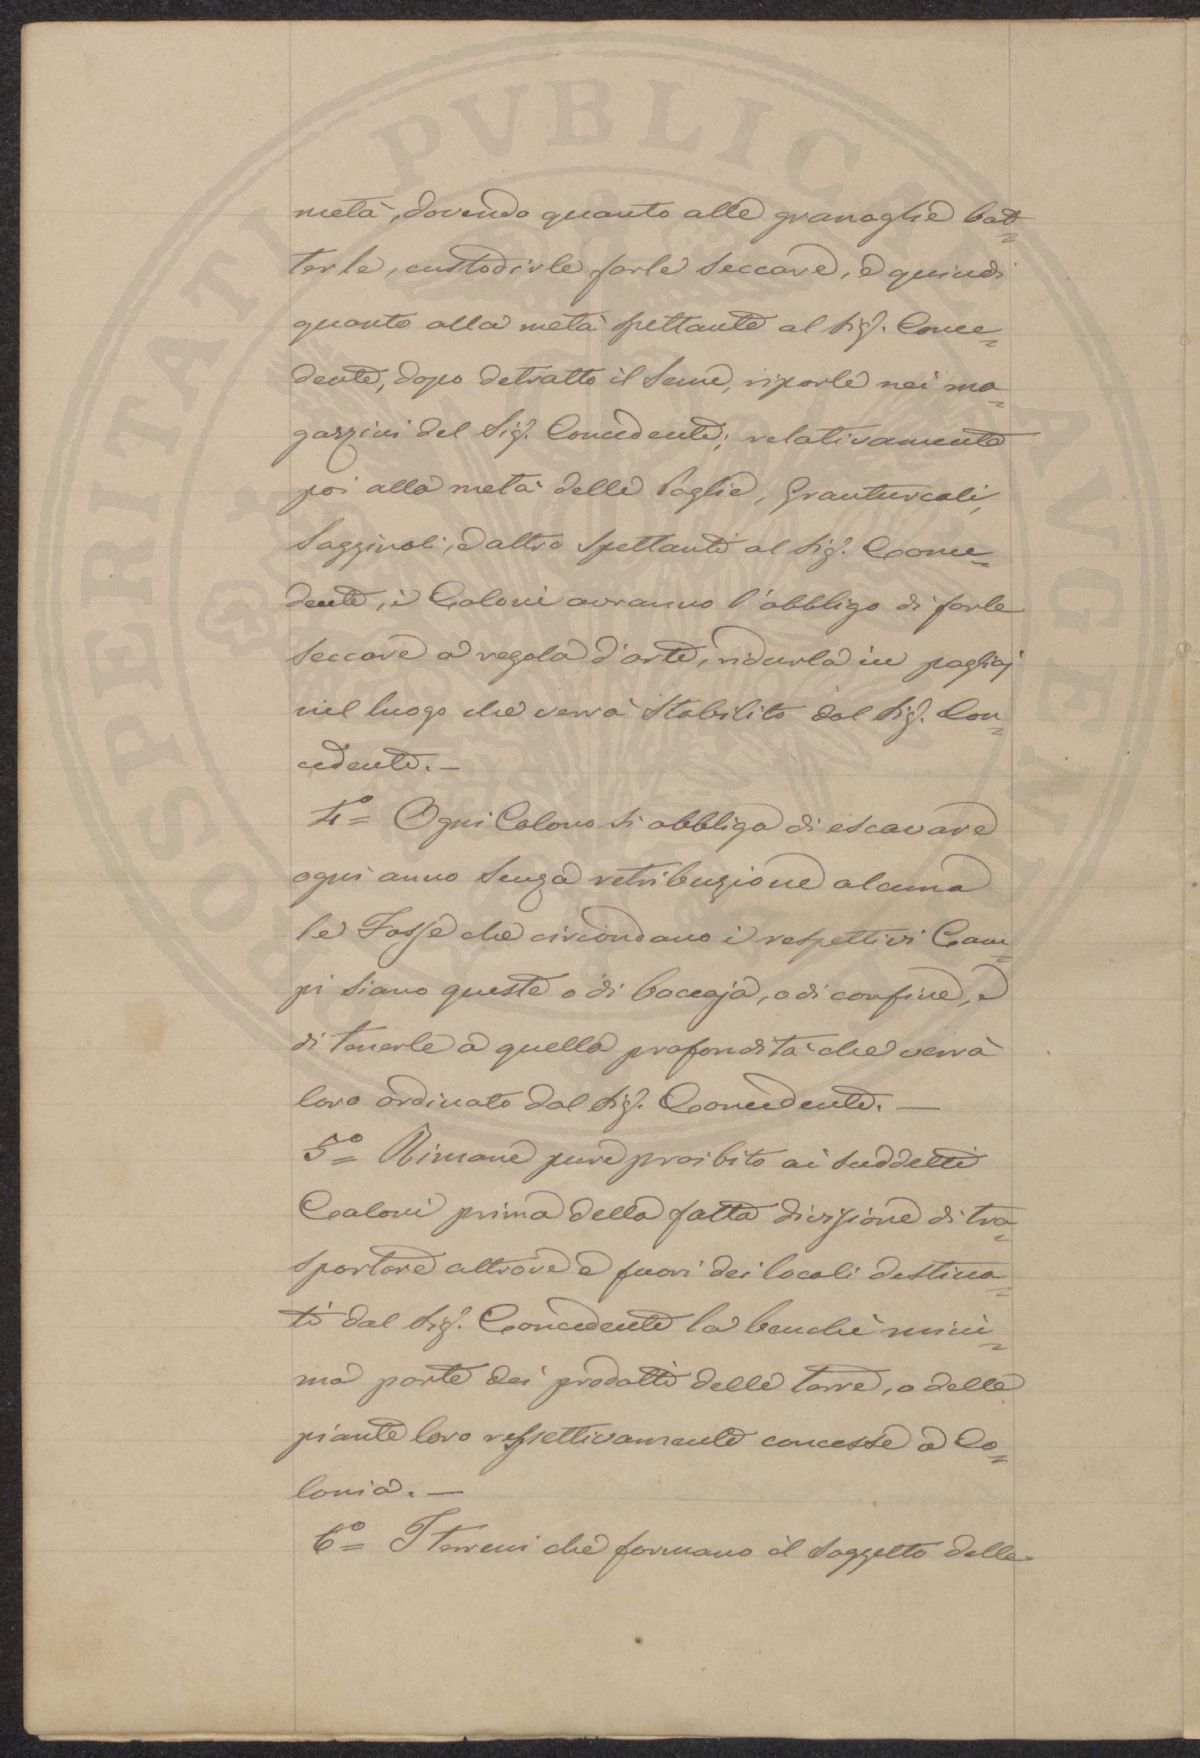 metà, dovendo quanto alle granaglie bat=
terle, custodirle farle seccare, e quindi
quanto alla metà spettante al Sig.r Conce=
dente, dopo detratto il Seme, riporle nei ma=
gazzini del Sig.r Concedente; relativamente
poi alla metà delle Paglie, Granturcali,
Sagginali, ed altro Spettante al Sig.r Conce=
dente, i Coloni avranno l'obbligo di farle
Seccare a regola d'arte, ridurla in pagliaj
nel luogo che verrà Stabilito dal Sig.r Con=
cedente. —
4°= Ogni Colono si obbliga di escavare
ogni anno Senza retribuzione alcuna
le Fosse che circondano i respettivi Cam=
pi siano queste o di boccaja, o di confine, e
di tenerle a quella profondità che verrà
loro ordinato dal Sig.r Concedente. —
5°= Rimane pure proibito ai Suddetti
Coloni prima della fatta divisione di tra=
sportare altrove e fuori dei locali destina=
ti dal Sig.r Concedente la benchè mini=
ma parte dei prodotti delle terre, o delle
piante loro respettivamente concesse a Co=
lonia. —
6°= I terreni che formano il Soggetto delle
PROSPERITATI PVBLICAE AVGENDAE